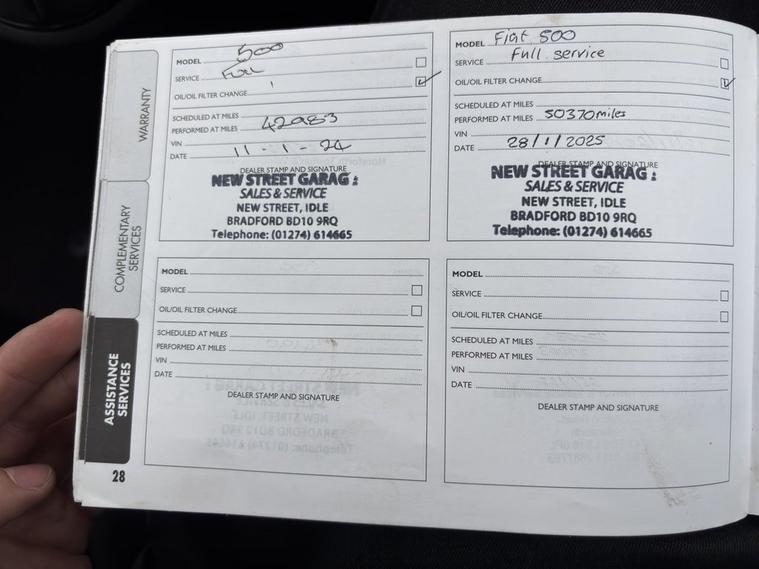 WARRANTY
COMPLEMENTARY
SERVICES
ASSISTANCE
SERVICES
28
MODEL 500
SERVICE Full
OIL/OIL FILTER CHANGE ✓
SCHEDULED AT MILES
PERFORMED AT MILES 42983
VIN
DATE 11-1-24
DEALER STAMP AND SIGNATURE
NEW STREET GARAG :
SALES & SERVICE
NEW STREET, IDLE
BRADFORD BD10 9RQ
Telephone: (01274) 614665
MODEL Fiat 500
SERVICE Full service
OIL/OIL FILTER CHANGE ✓
SCHEDULED AT MILES
PERFORMED AT MILES 50370miles
VIN
DATE 28/1/2025
DEALER STAMP AND SIGNATURE
NEW STREET GARAG :
SALES & SERVICE
NEW STREET, IDLE
BRADFORD BD10 9RQ
Telephone: (01274) 614665
MODEL
SERVICE
OIL/OIL FILTER CHANGE
SCHEDULED AT MILES
PERFORMED AT MILES
VIN
DATE
DEALER STAMP AND SIGNATURE
MODEL
SERVICE
OIL/OIL FILTER CHANGE
SCHEDULED AT MILES
PERFORMED AT MILES
VIN
DATE
DEALER STAMP AND SIGNATURE